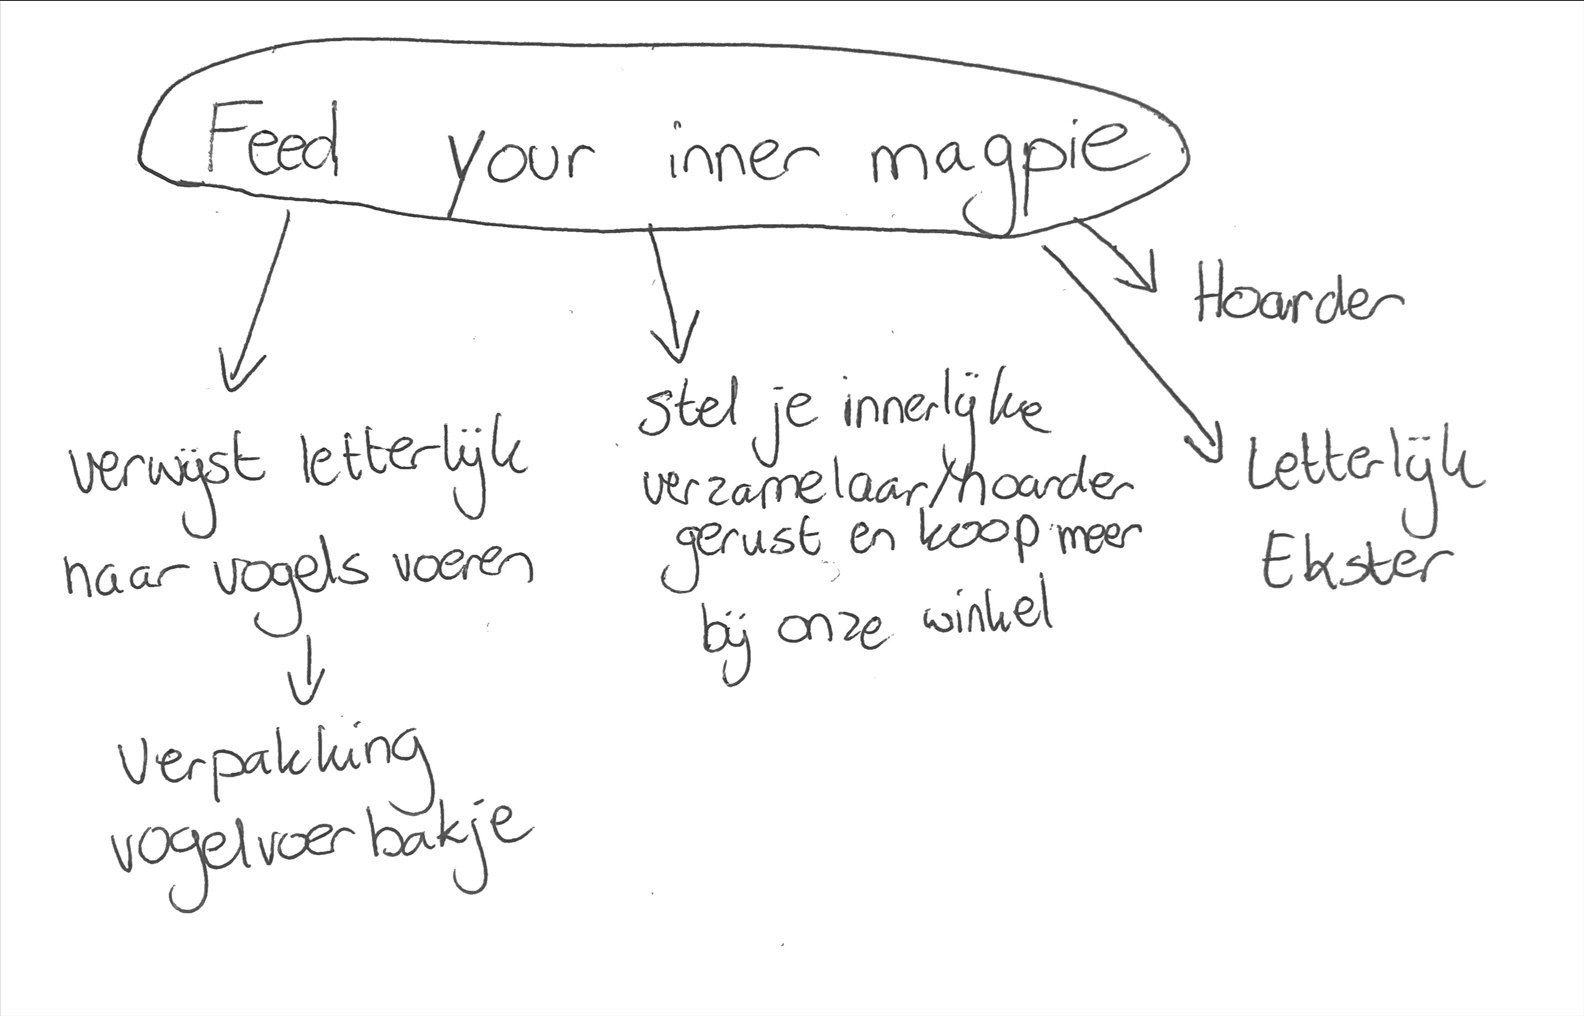 Feed your inner magpie
Hoarder
verwijst letterlijk
naar vogels voeren
stel je innerlijke
verzamelaar/hoarder
gerust en koop meer
bij onze winkel
Letterlijk
Ekster
Verpakking
vogelvoerbakje